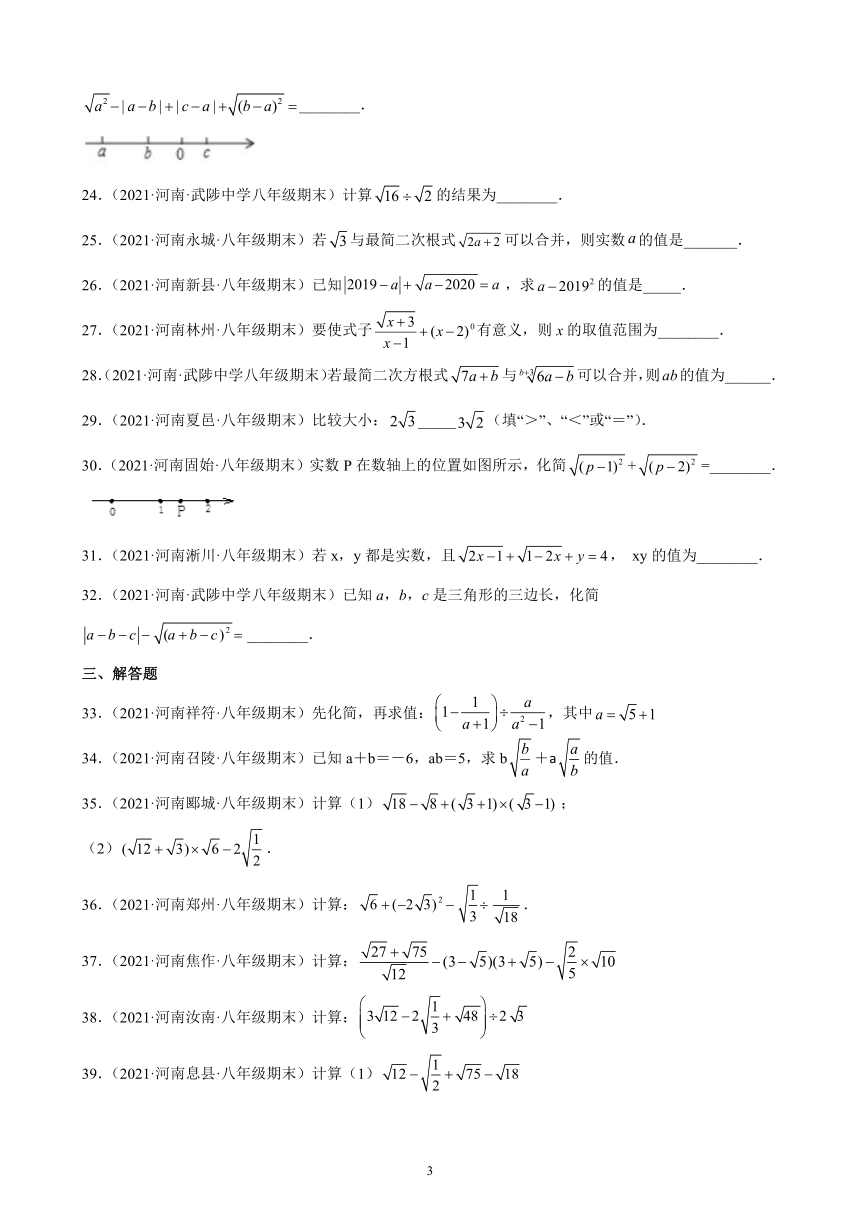 √a² − | a − b | + | c − a | + √(b − a)² = ________．
a b 0 c
24．（2021·河南·武陟中学八年级期末）计算√16 ÷ √2 的结果为________．
25．（2021·河南永城·八年级期末）若√3 与最简二次根式√(2a + 2) 可以合并，则实数 a 的值是_______．
26．（2021·河南新县·八年级期末）已知|2019 − a| + √(a − 2020) = a ，求 a − 2019² 的值是_____．
27．（2021·河南林州·八年级期末）要使式子 √(x + 3)/(x − 1) + (x − 2)⁰ 有意义，则 x 的取值范围为________．
28.（2021·河南·武陟中学八年级期末）若最简二次方根式√(7a + b) 与 ᵇ⁺³√(6a − b) 可以合并，则 ab 的值为______．
29．（2021·河南夏邑·八年级期末）比较大小：2√3 _____ 3√2（填“>”、“<”或“＝”）．
30．（2021·河南固始·八年级期末）实数 P 在数轴上的位置如图所示，化简√(p − 1)² + √(p − 2)² =________．
0 1 P 2
31．（2021·河南淅川·八年级期末）若 x，y 都是实数，且√(2x − 1) + √(1 − 2x) + y = 4， xy 的值为________．
32．（2021·河南·武陟中学八年级期末）已知 a，b，c 是三角形的三边长，化简
|a − b − c| − √(a + b − c)² = ________．
三、解答题
33．（2021·河南祥符·八年级期末）先化简，再求值：(1 − 1/(a + 1)) ÷ a/(a² − 1)，其中 a = √5 + 1
34．（2021·河南召陵·八年级期末）已知 a＋b＝－6，ab＝5，求 b√(b/a) ＋a√(a/b) 的值．
35．（2021·河南郾城·八年级期末）计算（1）√18 − √8 + (√3 + 1) × (√3 − 1)；
（2）(√12 + √3) × √6 − 2√(1/2)．
36．（2021·河南郑州·八年级期末）计算：√6 + (−2√3)² − √(1/3) ÷ 1/√18．
37．（2021·河南焦作·八年级期末）计算：(√27 + √75)/√12 − (3 − √5)(3 + √5) − √(2/5) × √10
38．（2021·河南汝南·八年级期末）计算：(3√12 − 2√(1/3) + √48) ÷ 2√3
39．（2021·河南息县·八年级期末）计算（1）√12 − √(1/2) + √75 − √18
3